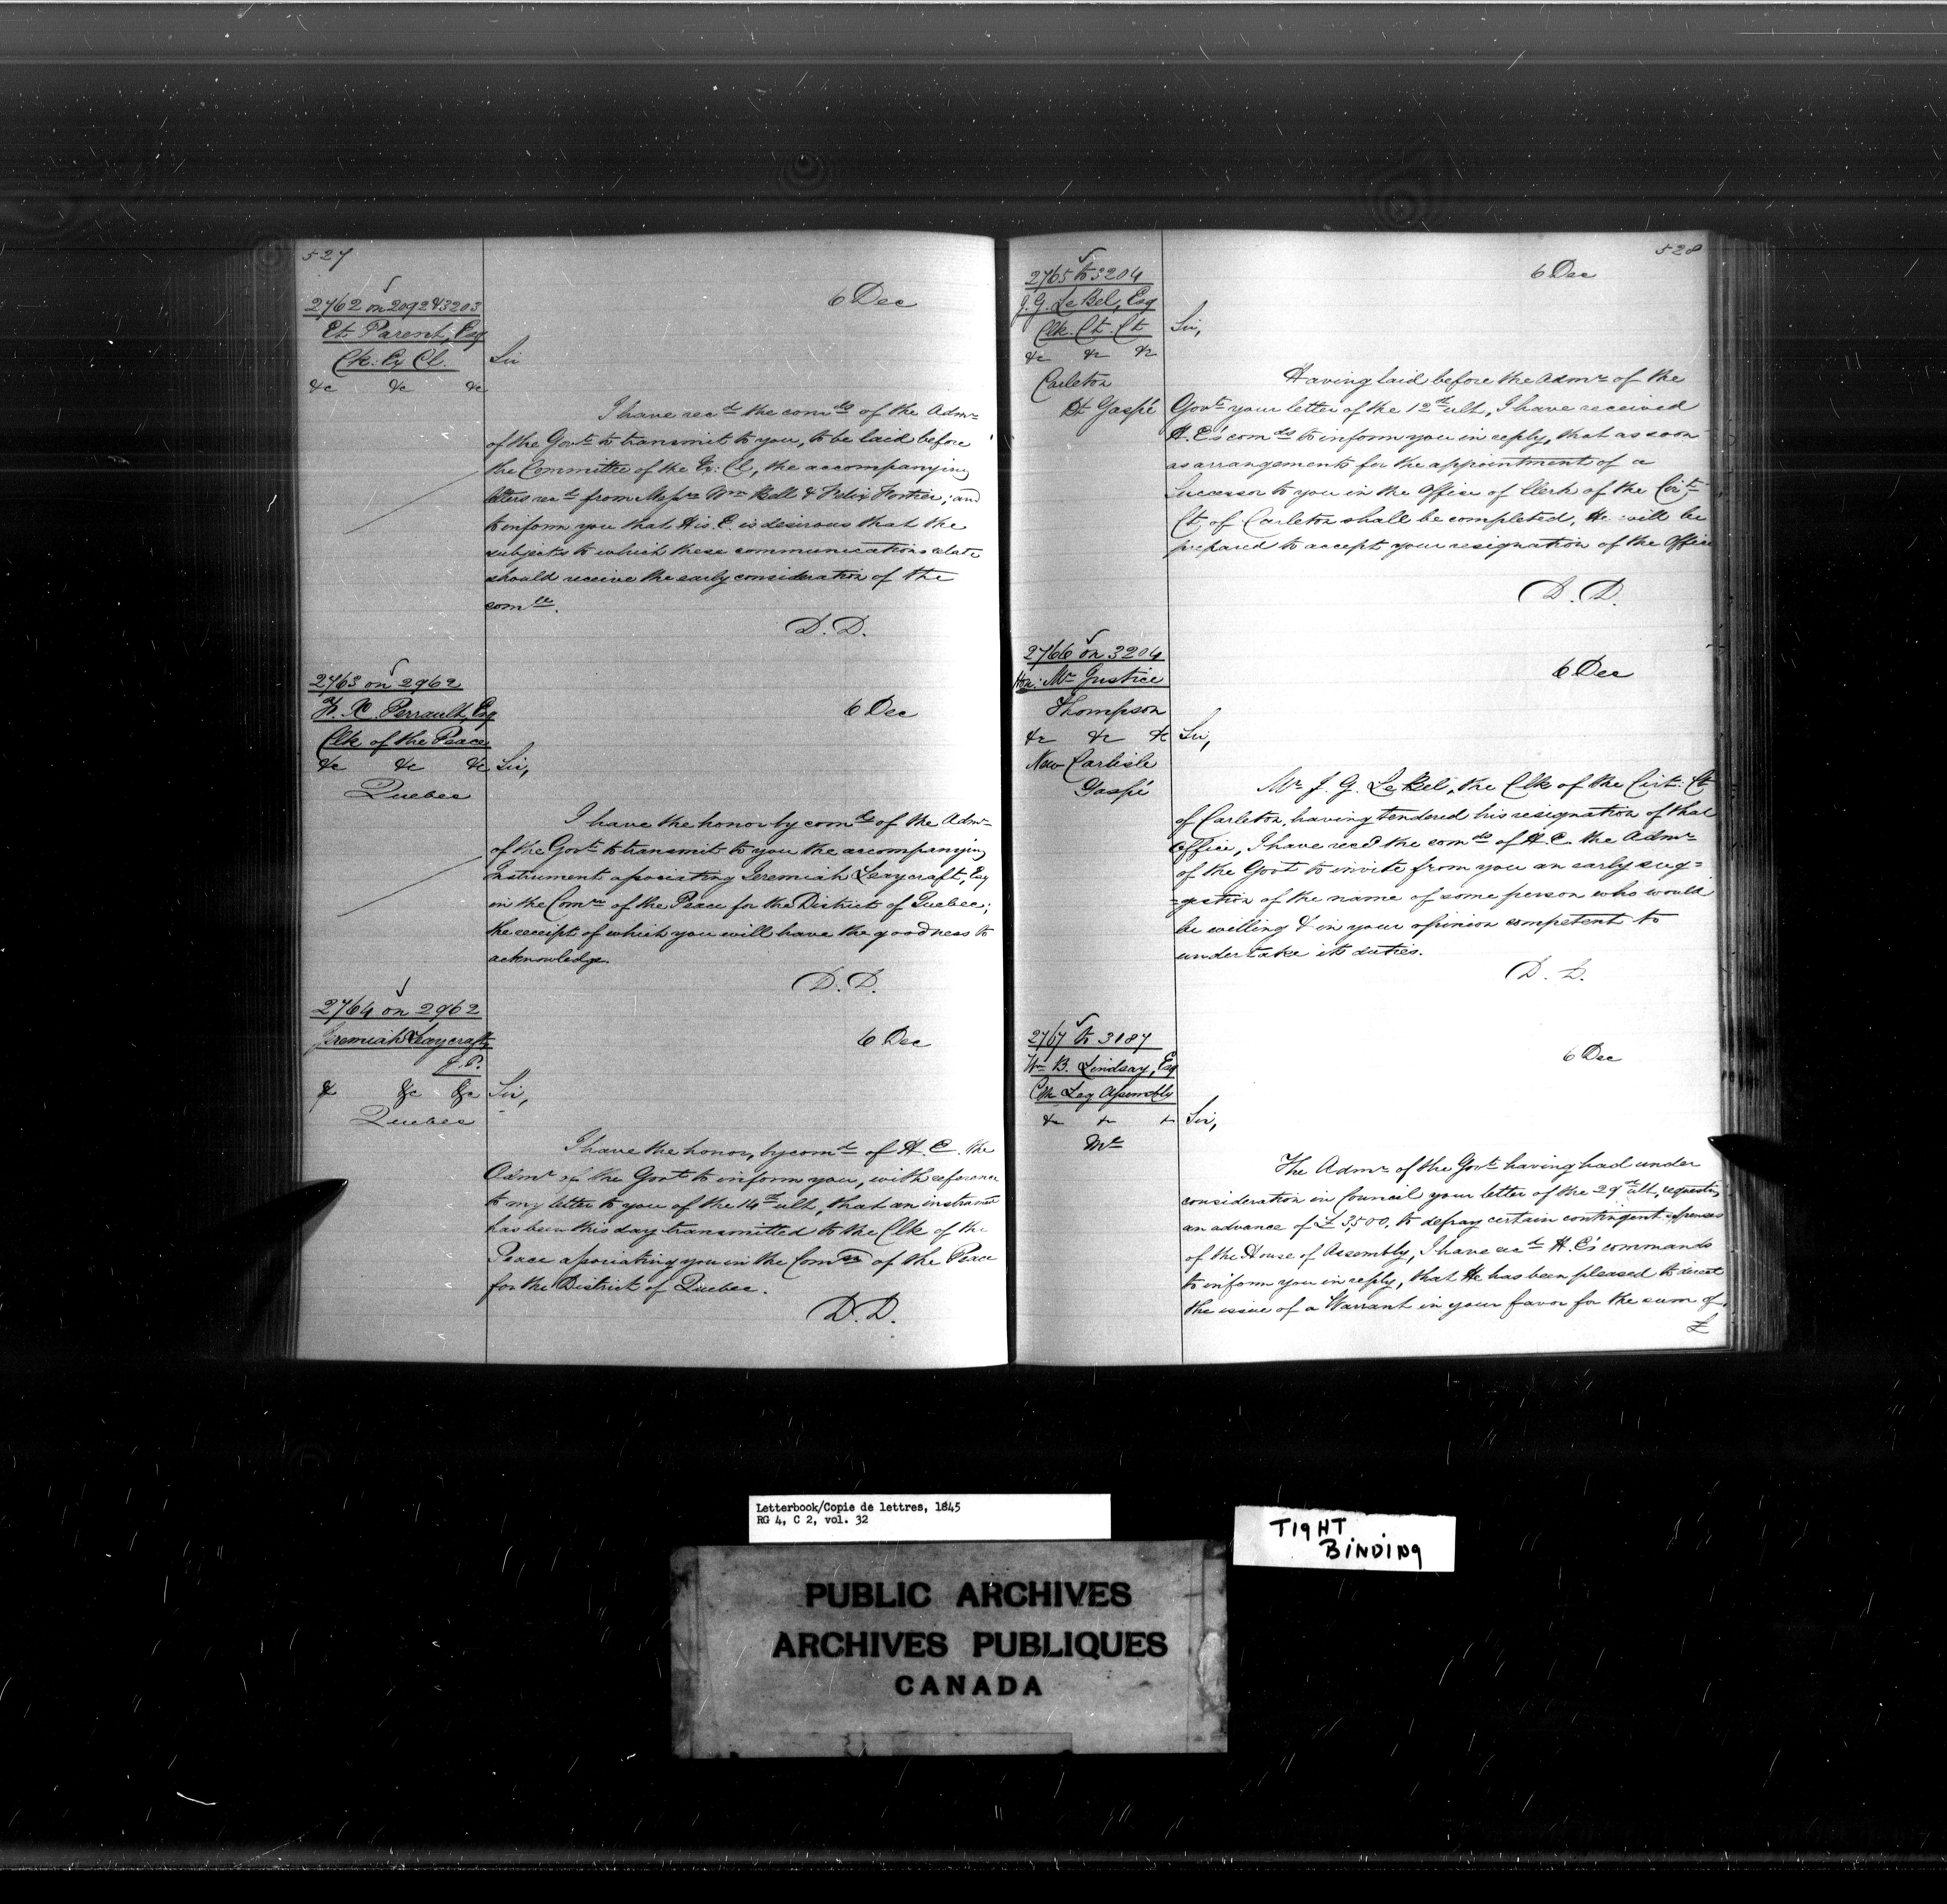 527
2762 on 2092 & 3203
Et. Parent, Esq
Ck: Ex Cl.
&c &c &c
6 Dec
Sir
I have rec^d the com^ds of the Adm^r
of the Gov^t to transmit to you, to be laid before
the Committee of the Ex: Cl, the accompanying
letters rec^d from Mess^rs W^m Bell & Felix Fortier; and
to inform you that His E is desirous that the
subjects to which these communications relate
should receive the early consideration of the
com^ee.
D. D.
2763 on 2962
F. X. Perrault, Esq
Clk of the Peace
&c &c &c
Quebec
6 Dec
Sir,
I have the honor by com^ds of the Adm^r
of the Gov^t to transmit to you the accompanying
Instrument associating Jeremiah Leaycraft, Esq
in the Com^on of the Peace for the District of Quebec;
the receipt of which you will have the goodness to
acknowledge.
D. D.
2764 on 2962
Jeremiah Leaycraft
J.P.
& &c &c
Quebec
6 Dec
Sir,
I have the honor, by com^d of H. E. the
Adm^r of the Gov^t to inform you, with reference
to my letter to you of the 14^th ult, that an instrument
has been this day transmitted to the Clk of the
Peace associating you in the Com^on of the Peace
for the District of Quebec.
D. D.
528
2765 to 3204
J. G. LeBel, Esq
Clk. Ct. Ct
&c &c &c
Carleton
Dt Gaspé
6 Dec
Sir,
Having laid before the Adm^r of the
Gov^t your letter of the 12^th ult, I have received
H. E's com^ds to inform you in reply, that as soon
as arrangements for the appointment of a
Successor to you in the Office of Clerk of the Cir^t
Ct, of Carleton shall be completed, He will be
prepared to accept your resignation of the Office
D. D.
2766 on 3204
Hon: Mr Justice
Thompson
&c &c &c
New Carlisle
Gaspé
6 Dec
Sir,
Mr J. G. LeBel, the Clk of the Cirt: Ct
of Carleton, having tendered his resignation of that
Office, I have recd the com^ds of H. E. the Adm^r
of the Govt to invite from you an early sug=
=gestion of the name of some person who would
be willing & in your opinion competent to
undertake its duties.
D. D.
2767 to 3187
Wm B. Lindsay, Esq
Clk Leg Assembly
&c &c &c
6 Dec
Sir,
The Adm^r of the Gov^t having had under
consideration in Council your letter of the 29^th ult, requesting
an advance of £3,500, to defray certain contingent expenses
of the House of Assembly, I have rec^d H. E's commands
to inform you in reply, that He has been pleased to direct
the issue of a Warrant in your favor for the sum of
£
Letterbook/Copie de lettres, 1845
RG 4, C 2, vol. 32
TIGHT
BINDING
PUBLIC ARCHIVES
ARCHIVES PUBLIQUES
CANADA